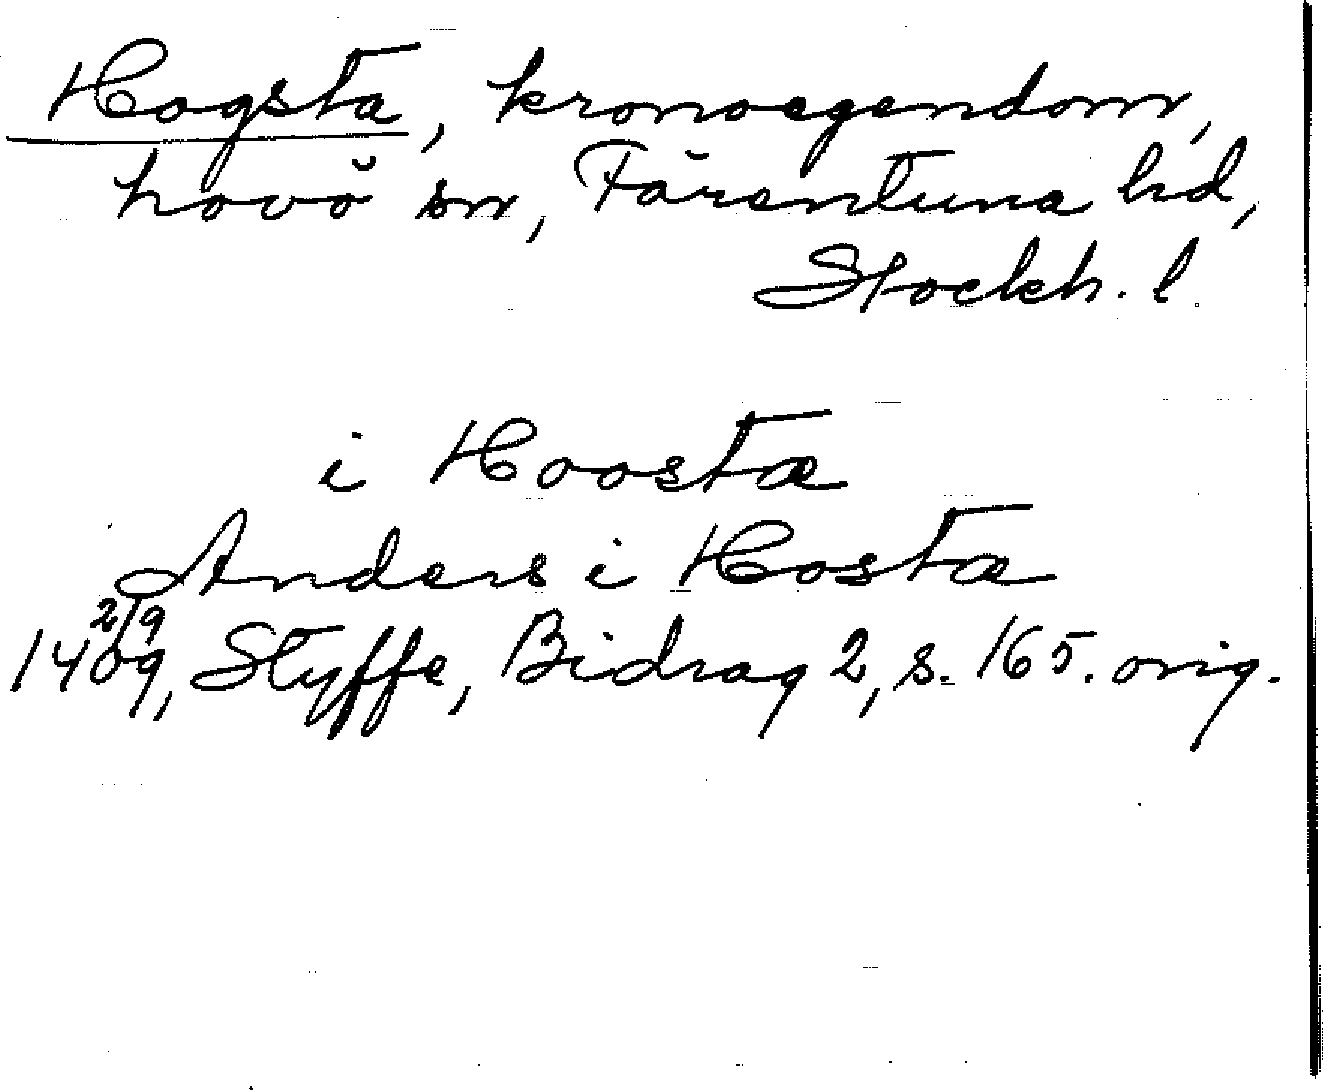 Hogsta, kronoegendom,
Lovö sn, Färentuna hd,
Stockh. l.
i Hoostæ
Anders i Hostæ
2/9
1409, Styffe, Bidrag 2, s. 165. orig.